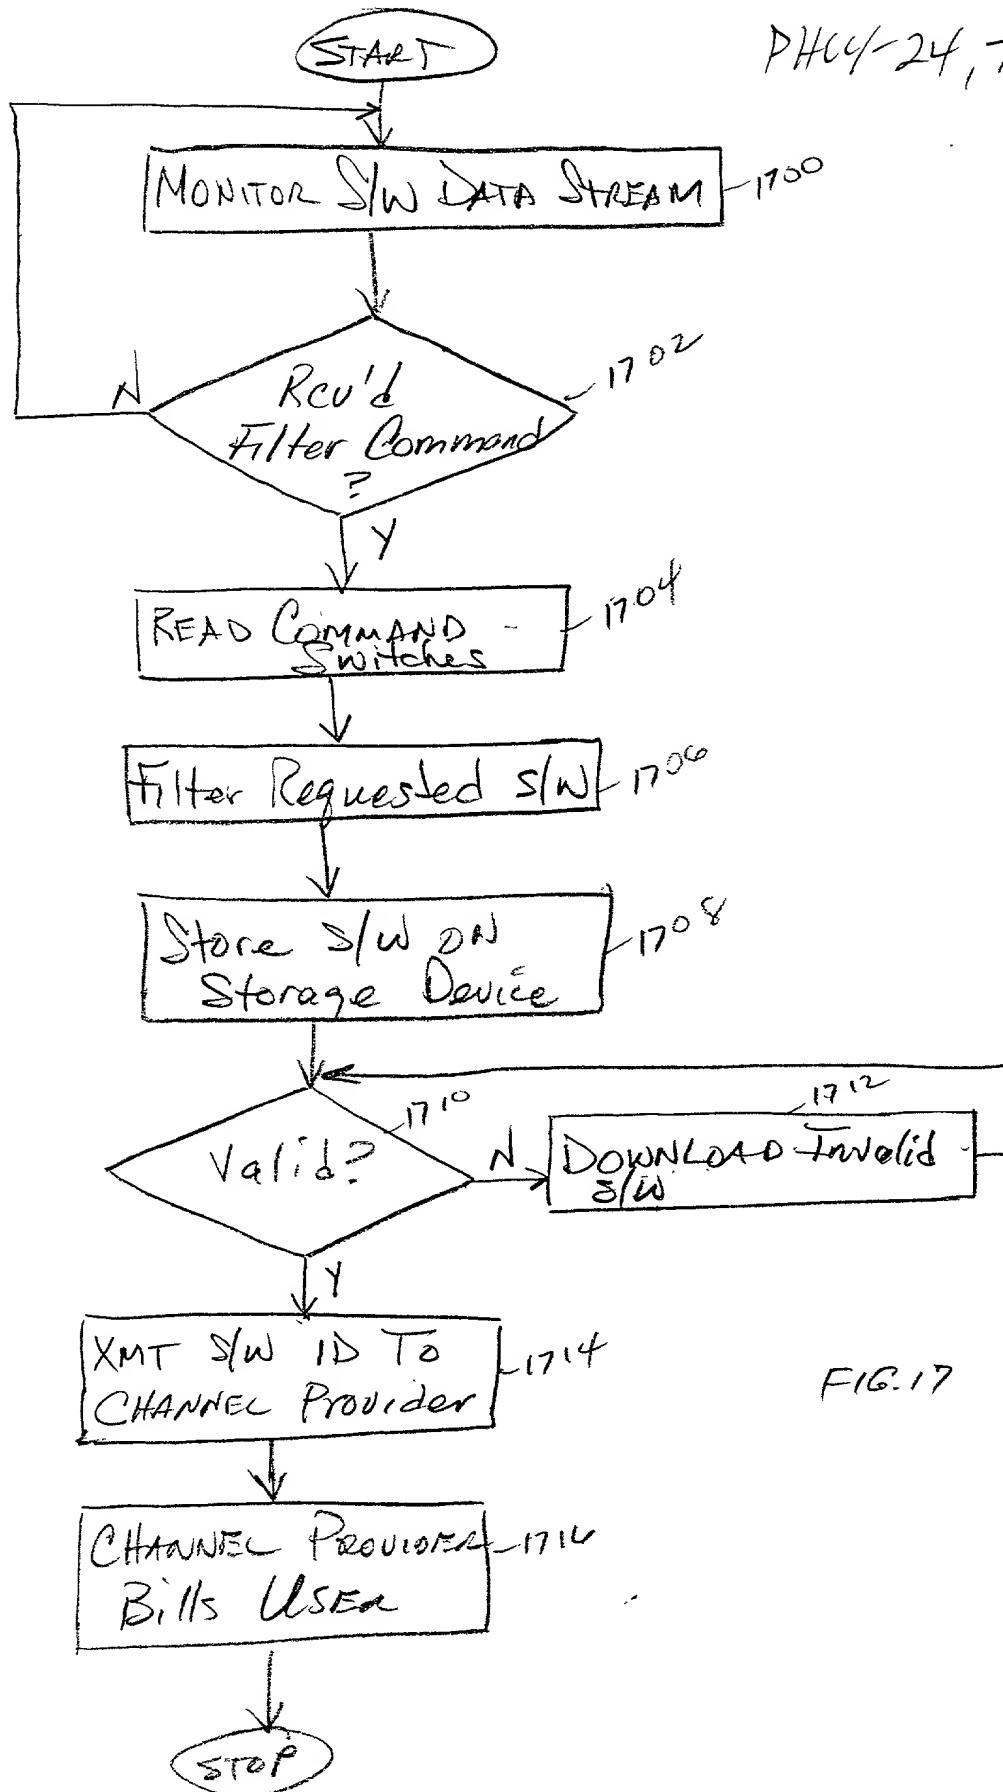 START
MONITOR S/W DATA STREAM
1700
Rcv'd
Filter Command
?
1702
N
Y
READ COMMAND
Switches
1704
Filter Requested S/W
1706
Store S/W ON
Storage Device
1708
Valid?
1710
N
DOWNLOAD Invalid
S/W
1712
Y
XMT S/W ID To
CHANNEL Provider
1714
FIG. 17
CHANNEL PROVIDER
Bills USER
1716
STOP